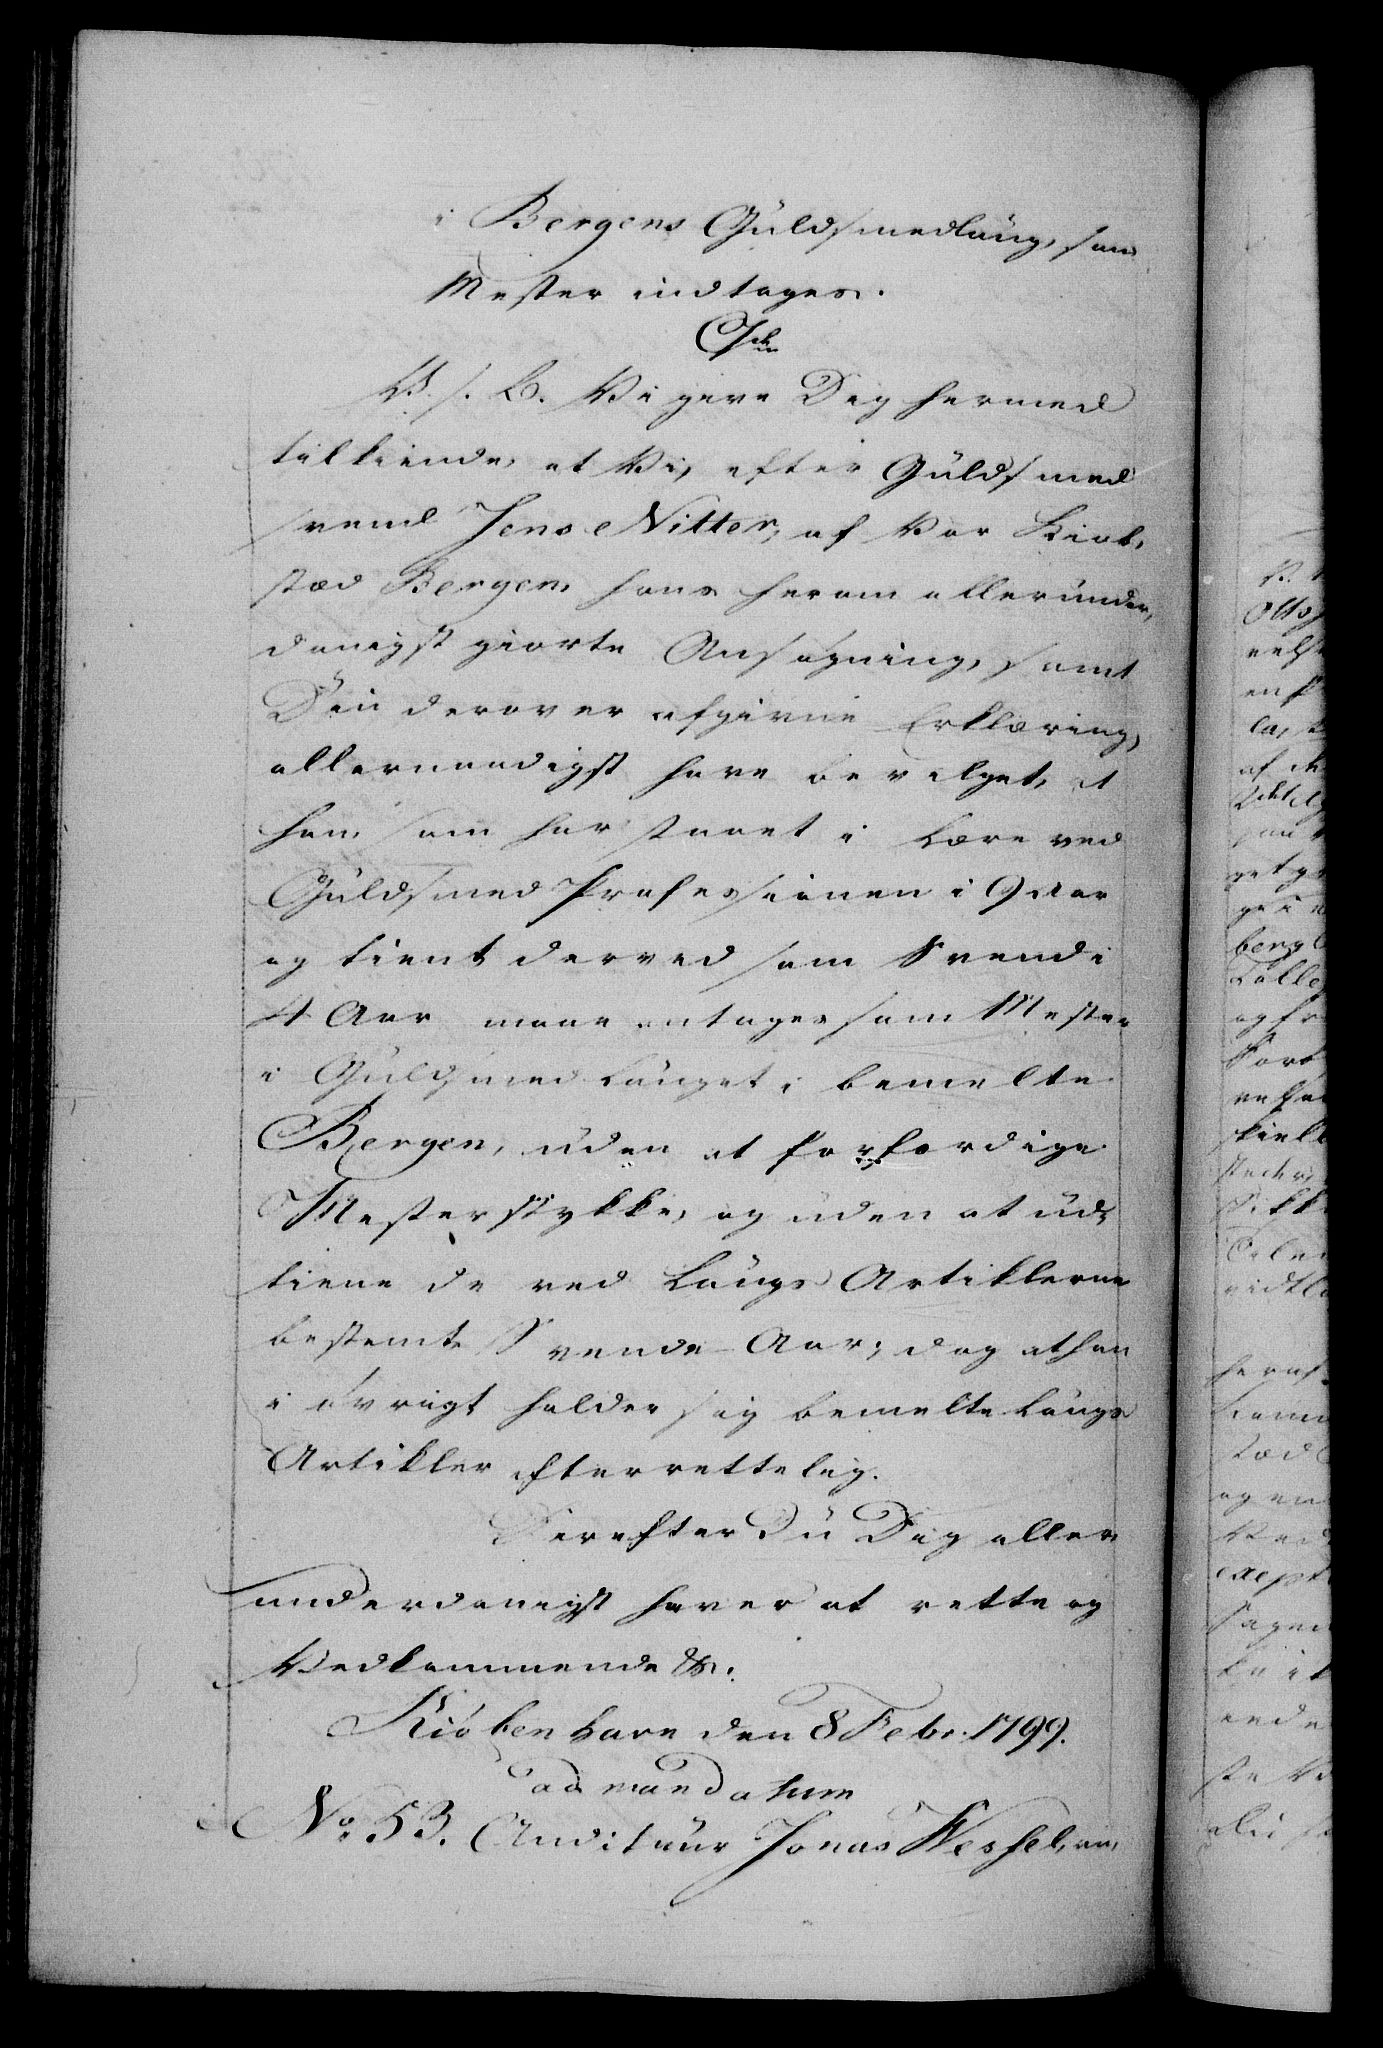 i Bergens Guldsmedlaug, som
Mester indtages.
C 7de
V. S. B. Vi give Dig hermed
tilkiende, at Vi, efter Guldsmed
svend Jens Nitter, af Vor Kiøb,
stæd Bergen, hans herom allerunder,
danigst giorte Ansøgning, samt
Din derover afgivne Erklæring,
allernaadigst have bevilget, at
han, som har staaet i Lære ved
Guldsmed Professionen i 9 Aar
og tient derved som Svend i
4 Aar maae antages som Mester
i Guldsmed Lauget i bemelte
Bergen, uden at forfærdige
Mesterstykke, og uden at ud,
tiene de ved Laugs Artiklerne
bestemte Svende-Aar; dog at han
i øvrigt holder sig bemelte Laugs
Artikler efterrettelig.
Derefter Du Dig aller
underdanigst haver at rette og
Vedkommende &c.
Kiøbenhavn den 8 Febr. 1799.
ad mandatum
No. 53. Auditeur Jonas Wessel, an,